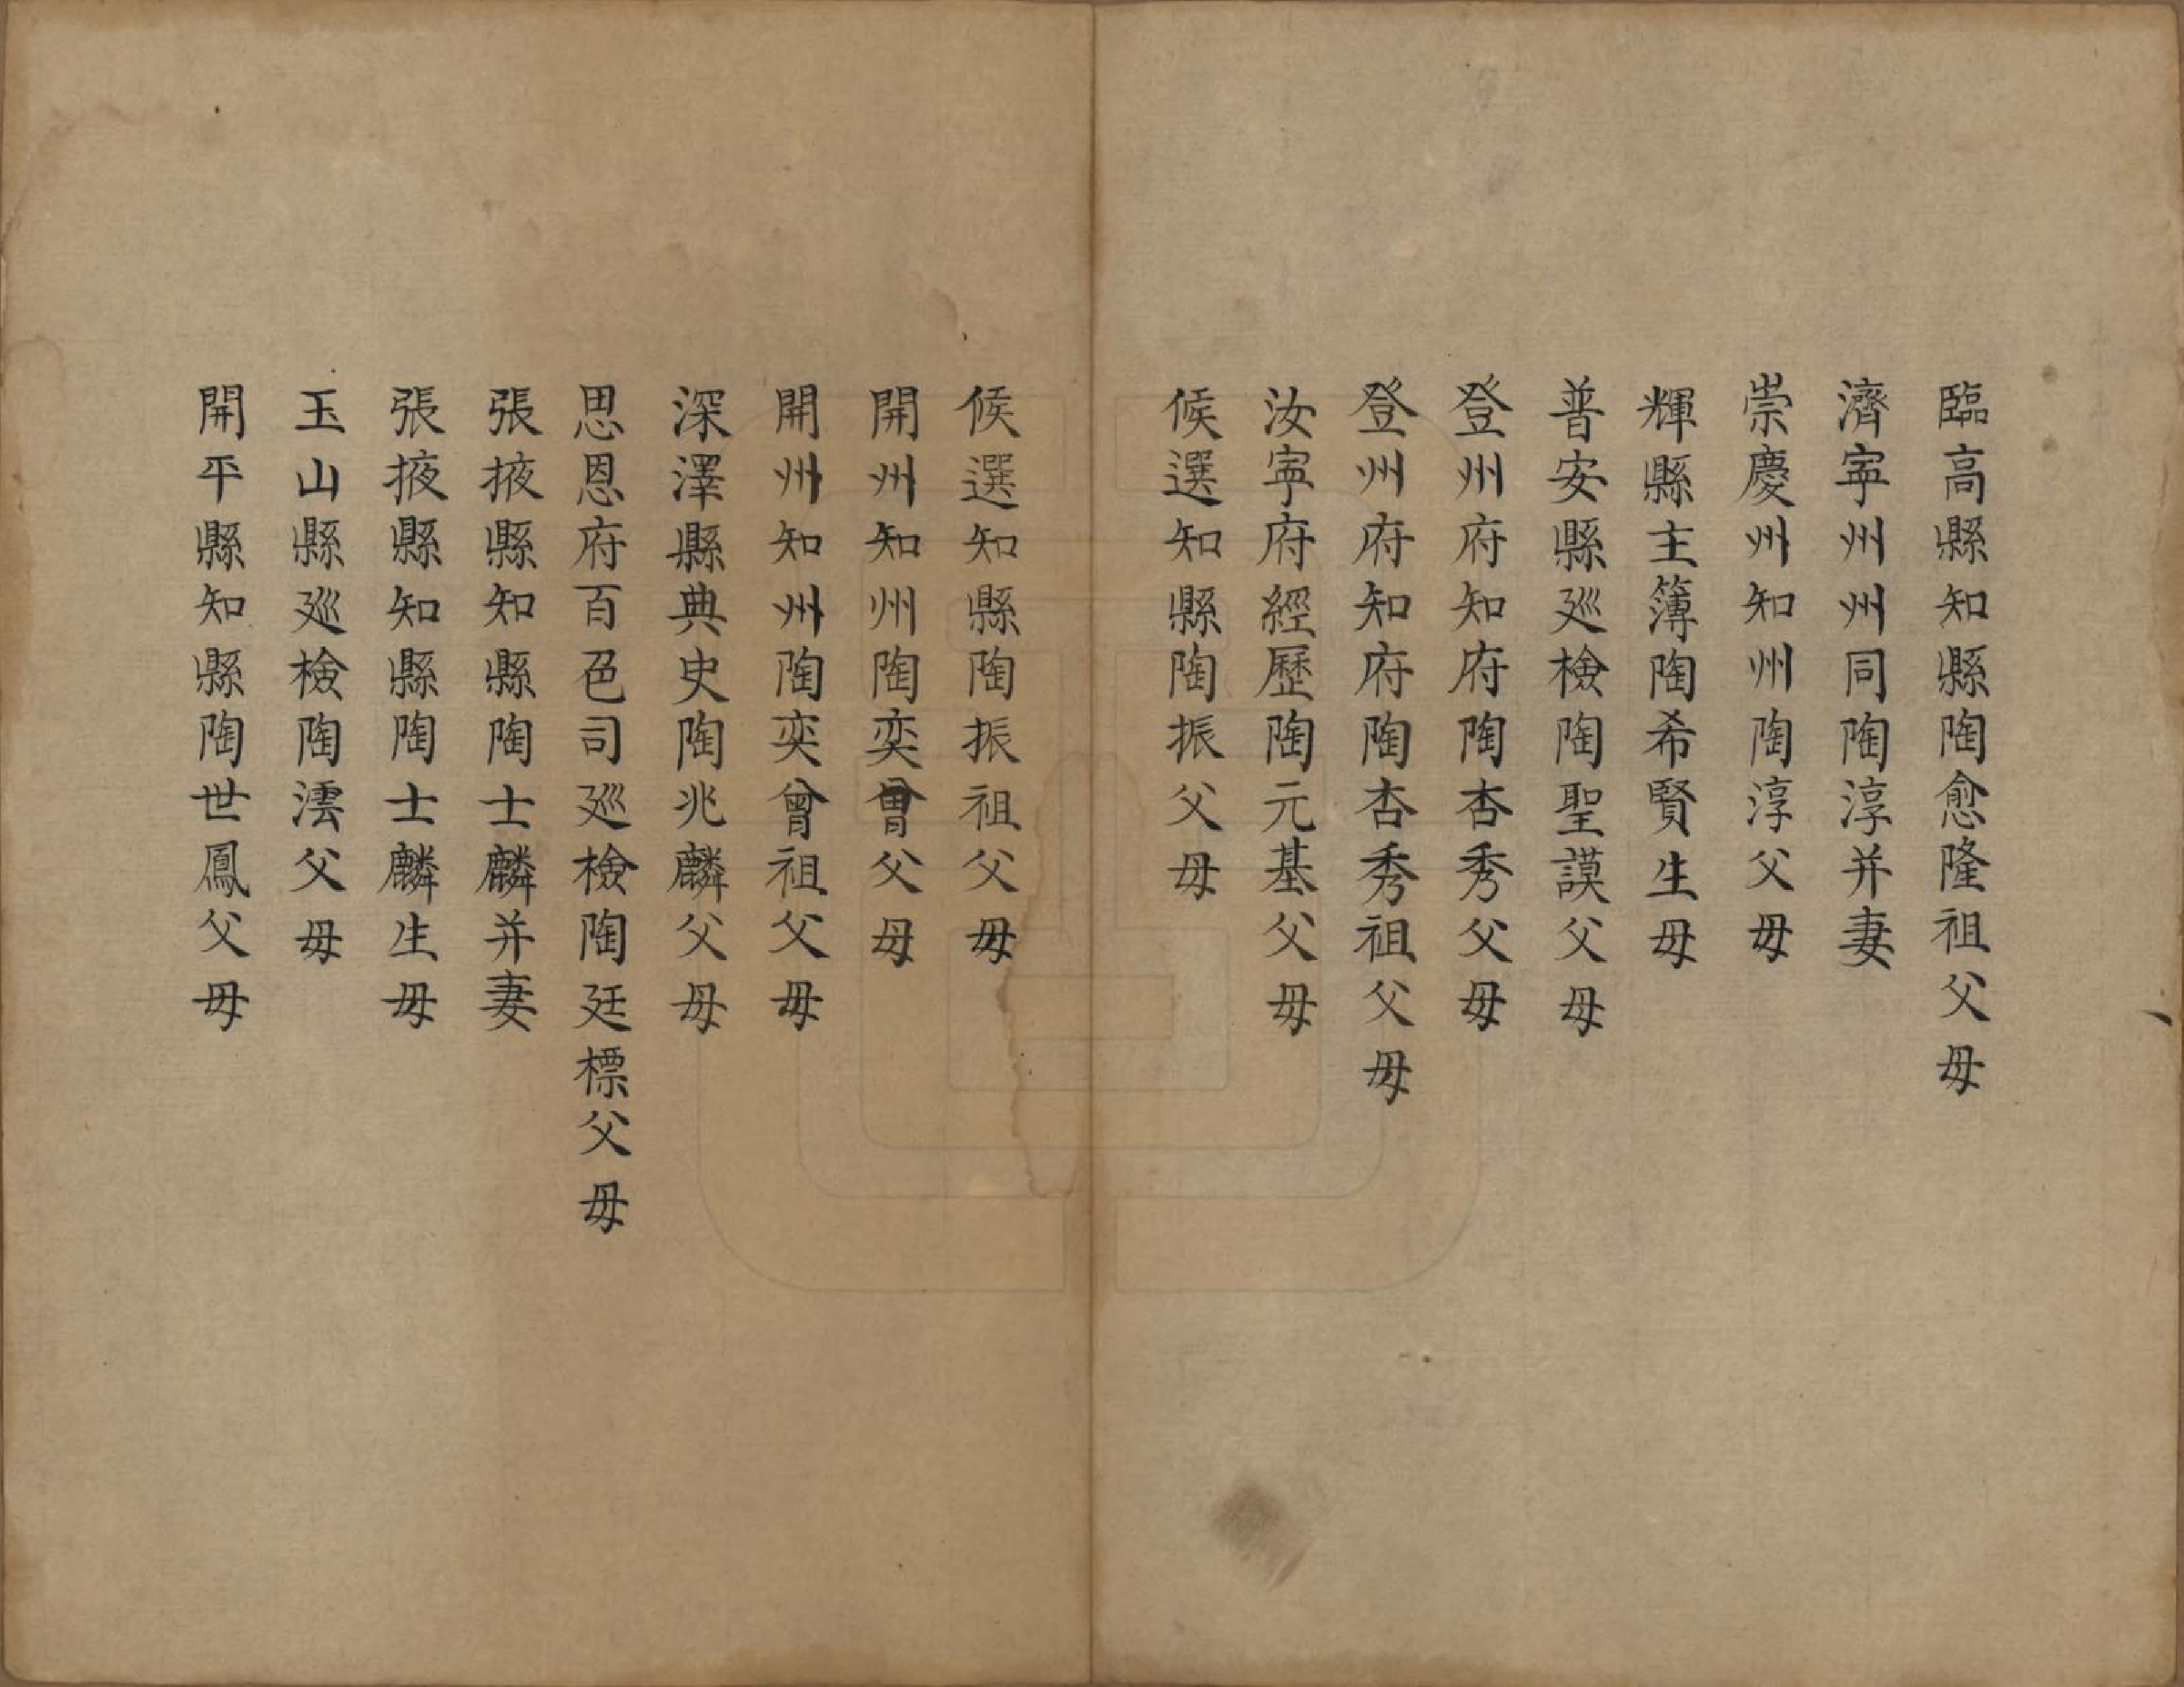 臨高縣知縣陶愈隆祖父母
濟寧州州同陶淳并妻
崇慶州知州陶淳父母
輝縣主簿陶希賢生母
普安縣廵檢陶聖謨父母
登州府知府陶杏秀父母
登州府知府陶杏秀祖父母
汝寧府經歷陶元基父母
候選知縣陶振父母
候選知縣陶振祖父母
開州知州陶奕曾父母
開州知州陶奕曾祖父母
深澤縣典史陶兆麟父母
思恩府百色司廵檢陶廷標父母
張掖縣知縣陶士麟并妻
張掖縣知縣陶士麟生母
玉山縣廵檢陶澐父母
開平縣知縣陶世鳳父母